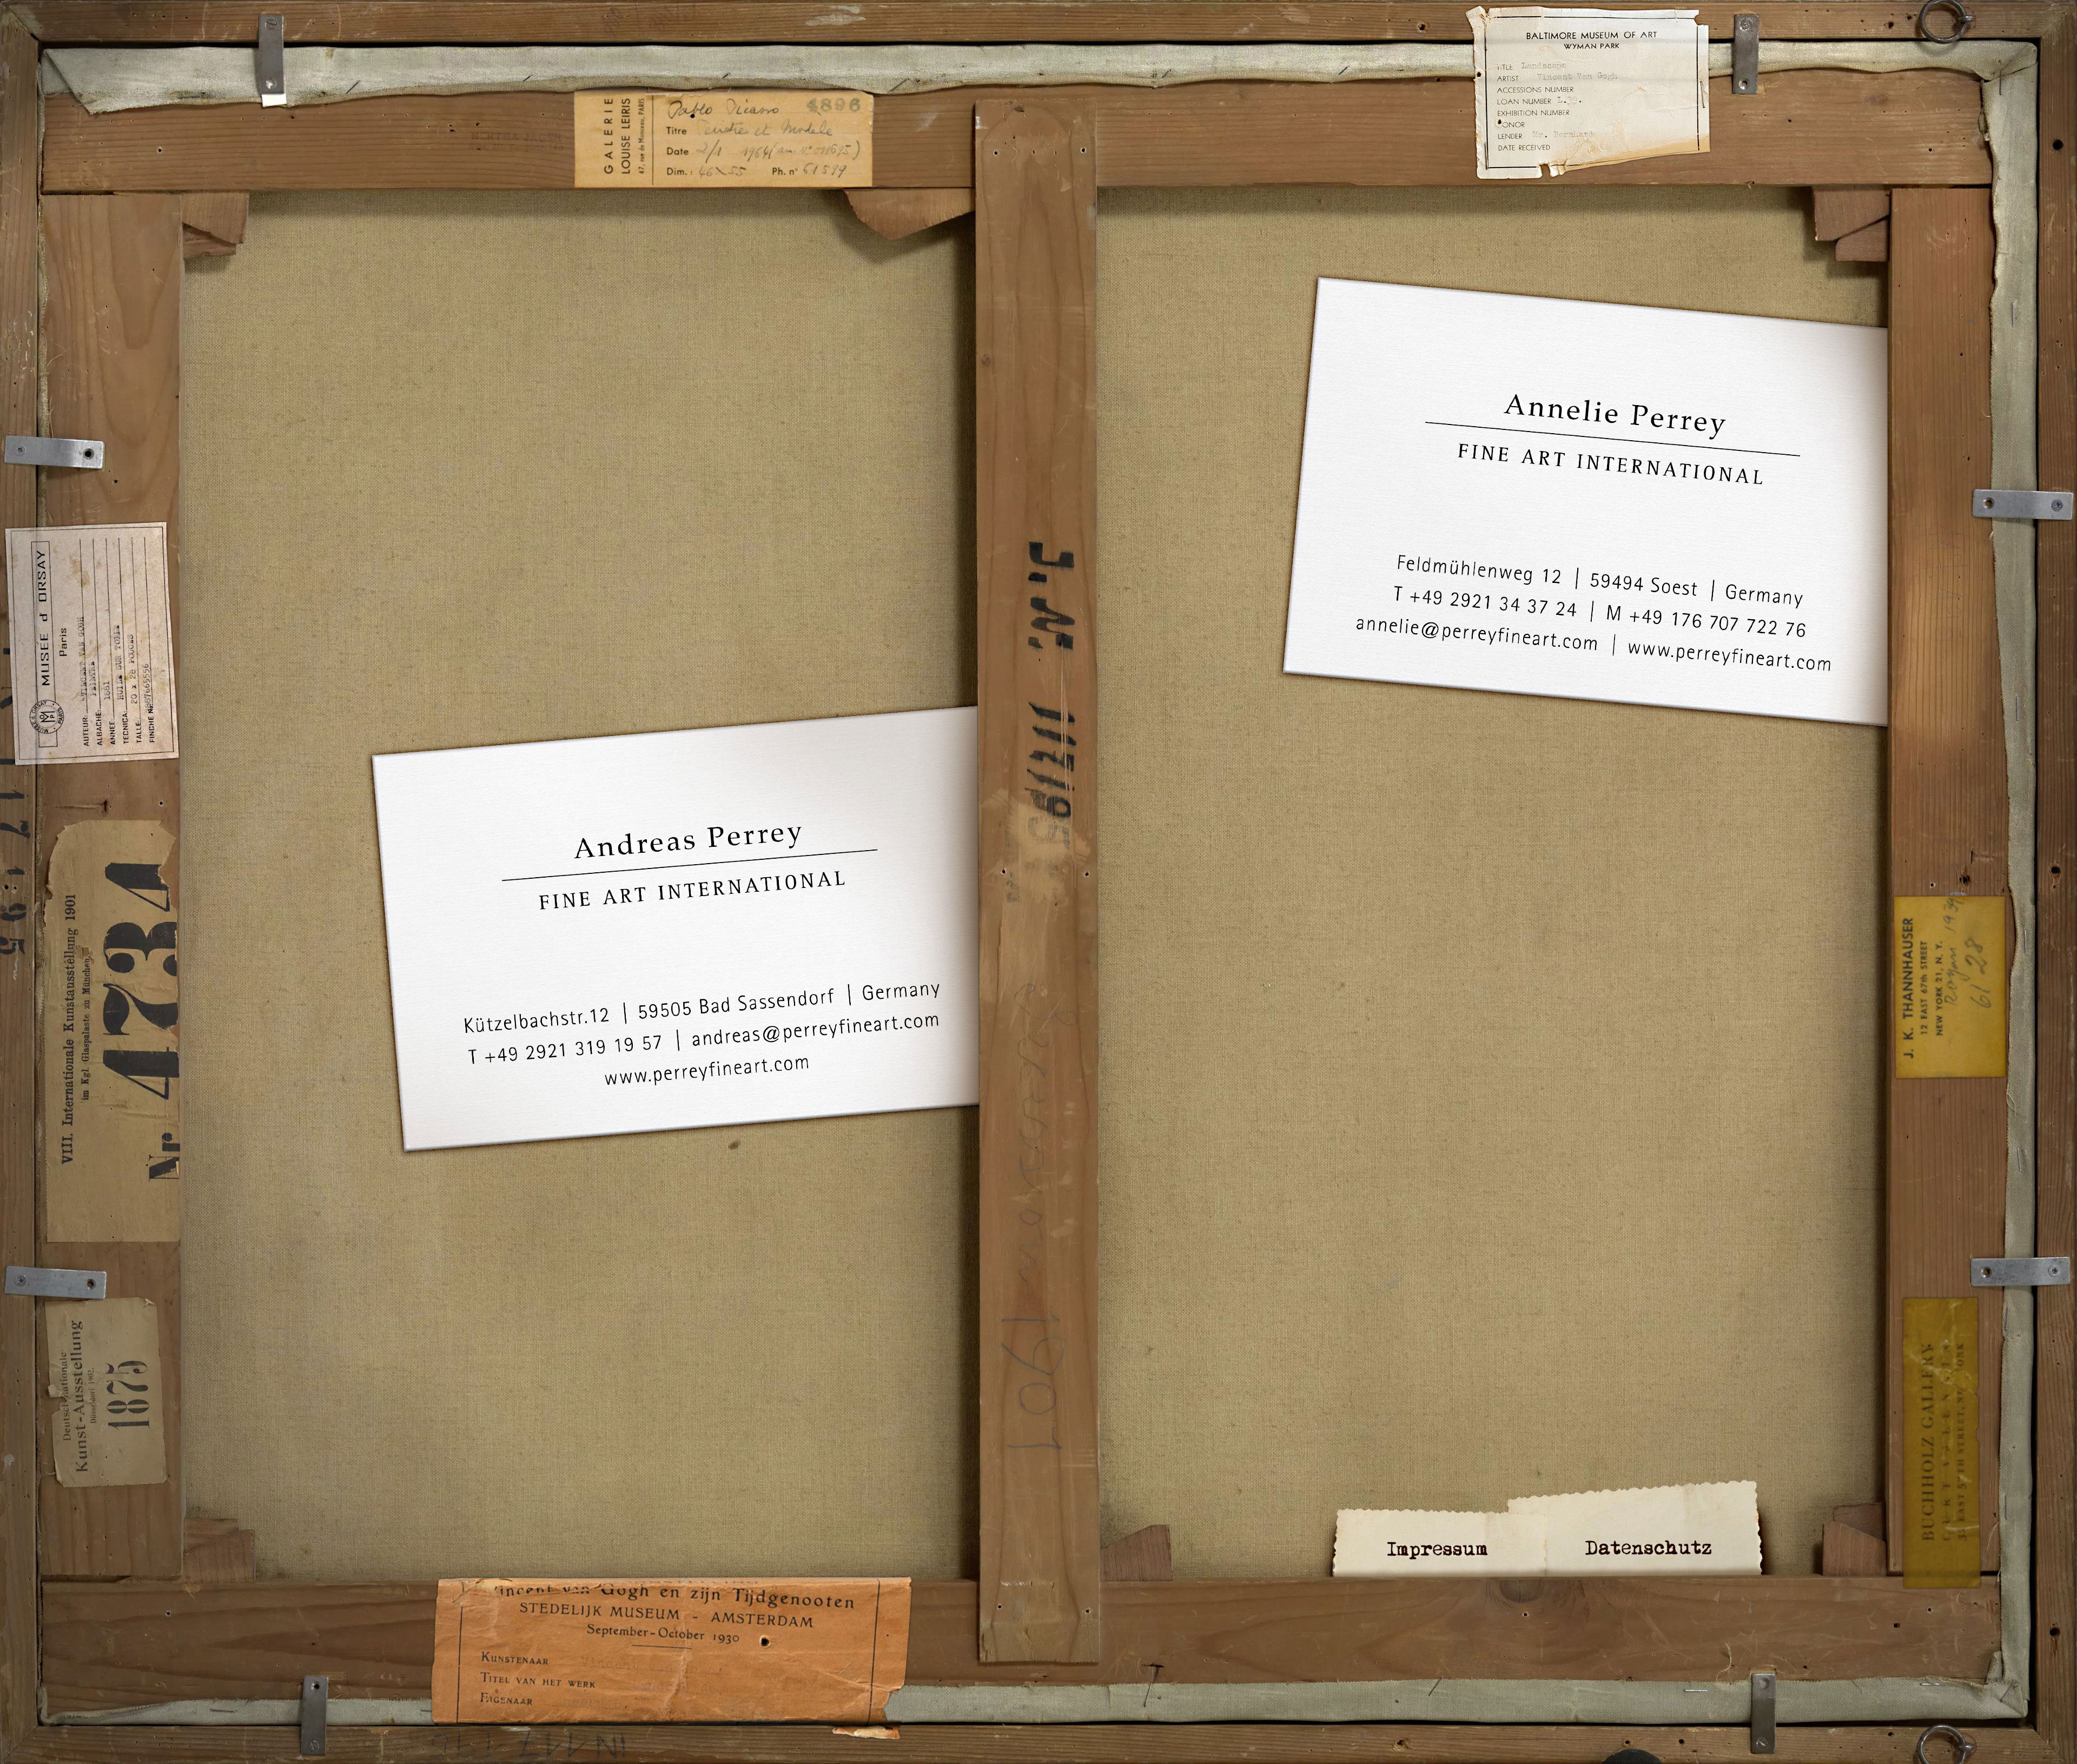 BALTIMORE MUSEUM OF ART
WYMAN PARK
TITLE Landscape
ARTIST Vincent Van Gogh
ACCESSIONS NUMBER
LOAN NUMBER
EXHIBITION NUMBER
DONOR
LENDER Mr. Bernhard
DATE RECEIVED
GALERIE
LOUISE LEIRIS
47, rue de Monceau, PARIS
Pablo Picasso 4896
Titre Peintre et Modele
Date 2/1 1964
Dim.: 46 X 55 Ph. n° 61599
Annelie Perrey
FINE ART INTERNATIONAL
Feldmühlenweg 12 | 59494 Soest | Germany
T +49 2921 34 37 24 | M +49 176 707 722 76
annelie@perreyfineart.com | www.perreyfineart.com
MUSEE d ORSAY
Paris
AUTEUR:
ALBACHE:
ANNEE 1881
TECNICA:
TALLE: 20 x 28
FINCHE
J.N.
Andreas Perrey
FINE ART INTERNATIONAL
Kützelbachstr.12 | 59505 Bad Sassendorf | Germany
T +49 2921 319 19 57 | andreas@perreyfineart.com
www.perreyfineart.com
VIII. Internationale Kunstausstellung 1901
im Kgl. Glaspalaste zu München
Nr. 4734
J. K. THANNHAUSER
12 EAST 67th STREET
NEW YORK 21, N. Y.
Royan 1939
61 28
1901
Deutsch-Nationale
Kunst-Ausstellung
Düsseldorf 1902.
1875
BUCHHOLZ GALLERY
CURT VALENTIN
Impressum
Datenschutz
Vincent van Gogh en zijn Tijdgenooten
STEDELIJK MUSEUM - AMSTERDAM
September-October 1930
KUNSTENAAR
TITEL VAN HET WERK
EIGENAAR